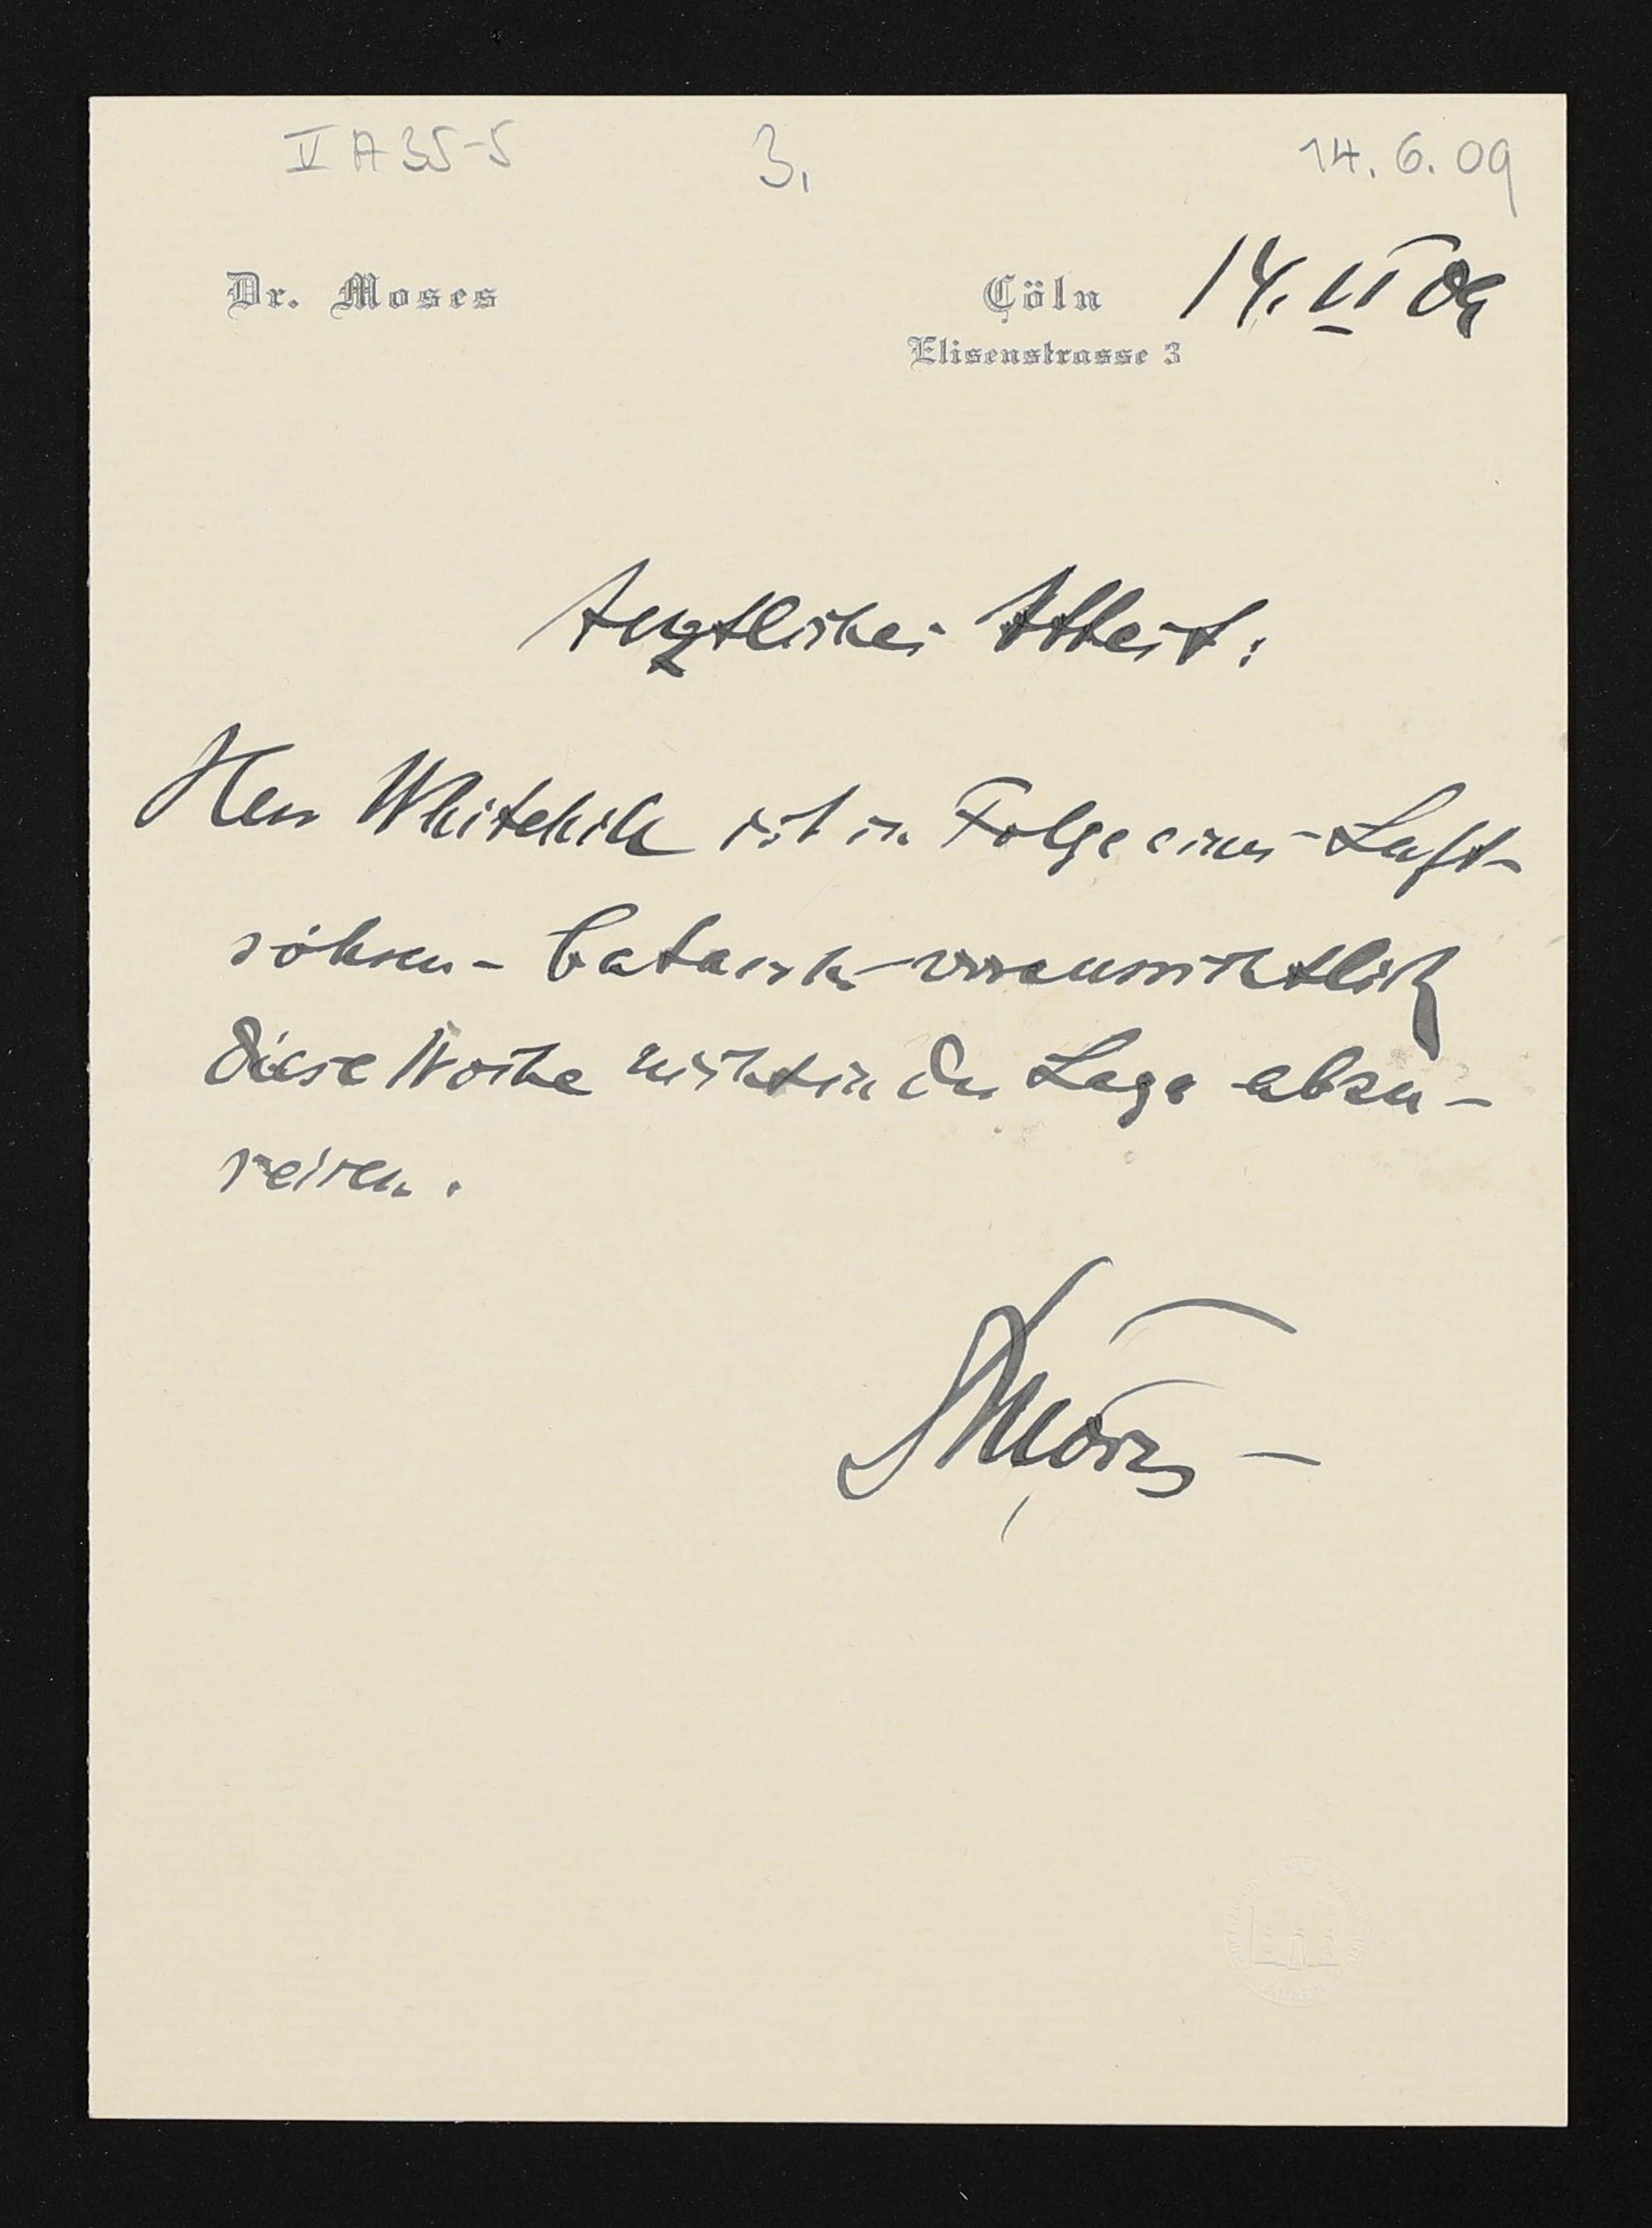 V A 35-5 3. 14.6.09
Dr. Moses Cöln 14. VI 09
Elisenstrasse 3
Aerztliches Attest:
Herr Whitehill ist in Folge eines Luft-
röhren-Catarrhs voraussichtlich
diese Woche nicht in der Lage abzu-
reisen.
DMoses